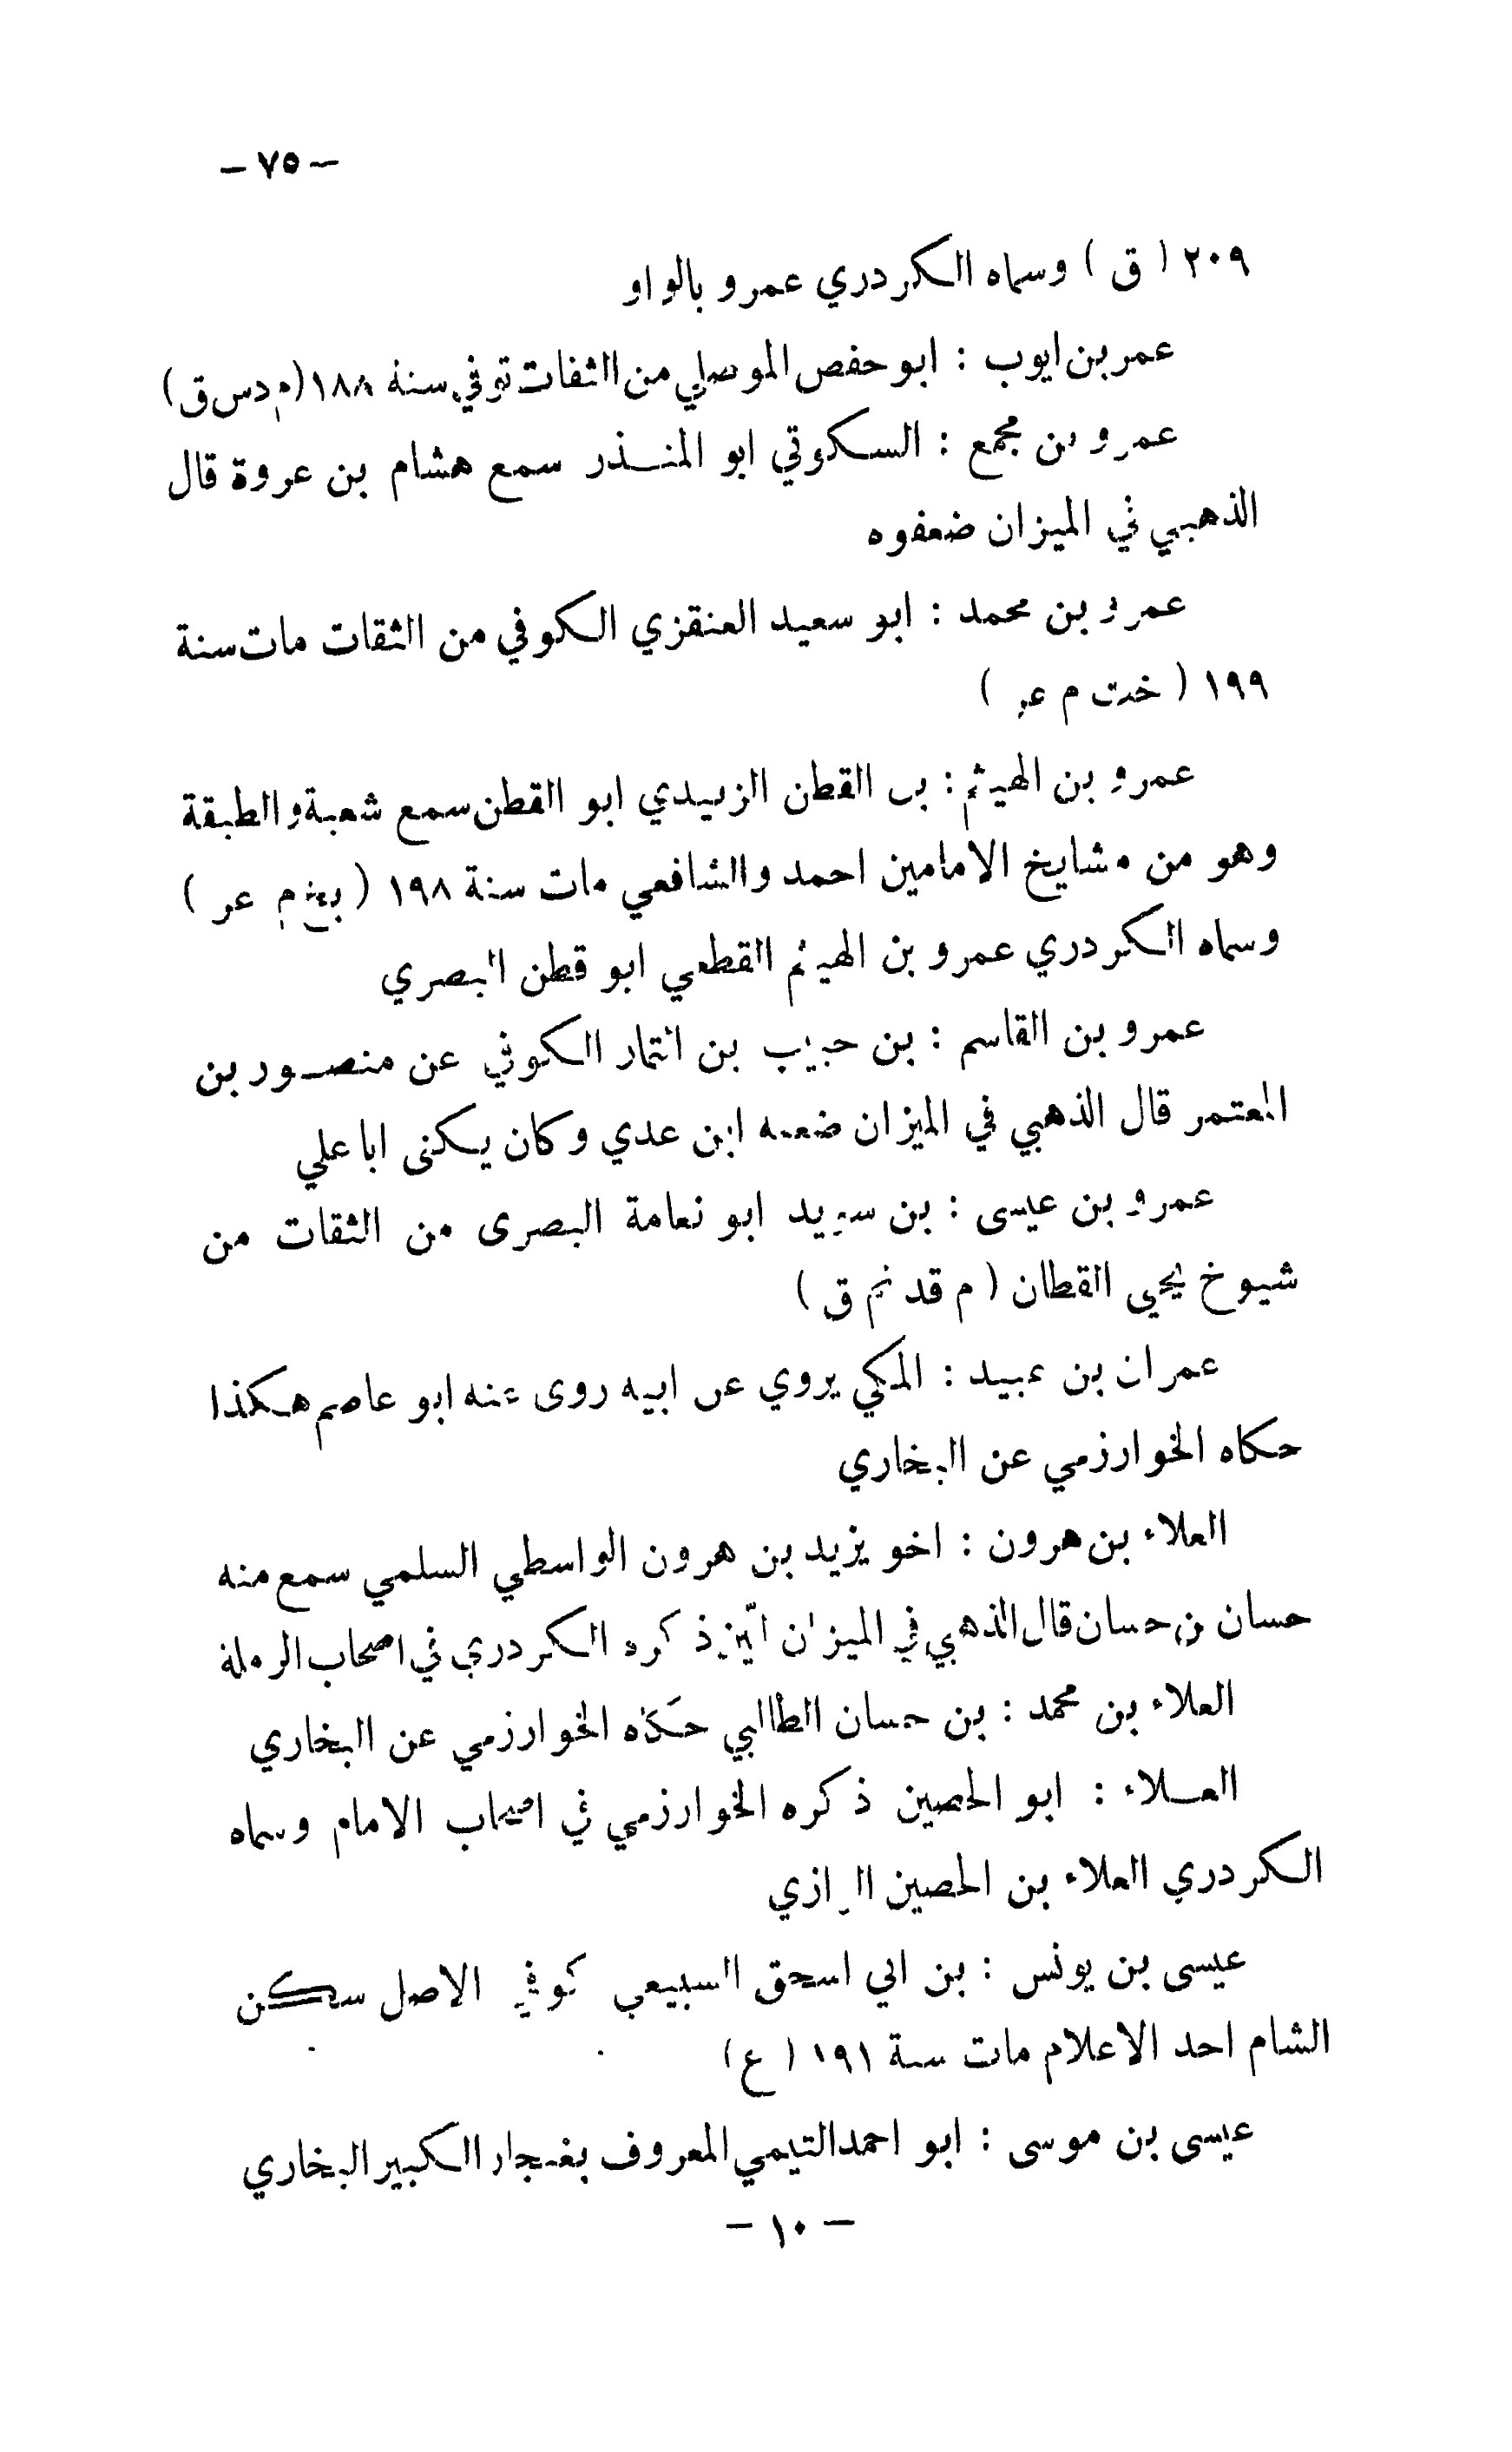 - ٧٥ -
٢٠٩ ( ق ) وسماه الكردري عمرو بالواو
عمر بن ايوب : ابو حفص الموصلي من الثقات توفي سنة ١٨٨ (م دس ق)
عمرو بن مجمع : السكوتي ابو المنذر سمع هشام بن عروة قال
الذهبي في الميزان ضعفوه
عمرو بن محمد : ابو سعيد العنقزي الكوفي من الثقات مات سنة
١٩٩ ( خت م عر )
عمرو بن الهيثم : بن القطن الزبيدي ابو القطن سمع شعبة والطبقة
وهو من مشايخ الامامين احمد والشافعي مات سنة ١٩٨ ( بخ م عر )
وسماه الكردري عمرو بن الهيثم القطعي ابو قطن البصري
عمرو بن القاسم : بن حبيب بن التمار الكوفي عن منصور بن
المعتمر قال الذهبي في الميزان ضعفه ابن عدي وكان يكنى ابا علي
عمرو بن عيسى : بن سويد ابو نعامة البصرى من الثقات من
شيوخ يحيى القطان ( م قد تم ق )
عمران بن عبيد : المكي يروي عن ابيه روى عنه ابو عاصم هكذا
حكاه الخوارزمي عن البخاري
العلاء بن هرون : اخو يزيد بن هرون الواسطي السلمي سمع منه
حسان بن حسان قال الذهبي في الميزان ذكره الكردري في اصحاب الرملة
العلاء بن محمد : بن حسان الطالبي حكاه الخوارزمي عن البخاري
العلاء : ابو الحصين ذكره الخوارزمي في اصحاب الامام وسماه
الكردري العلاء بن الحصين الرازي
عيسى بن يونس : بن ابي اسحق السبيعي كوفي الاصل سكن
الشام احد الاعلام مات سنة ١٩١ ( ع )
عيسى بن موسى : ابو احمد التيمي المعروف بغنجار الكبير البخاري
- ١٠ -